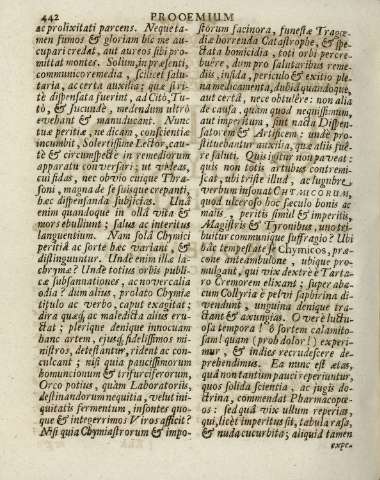 442 PROOEMIUM
ac prolixitati parcens. Neque ta-
men fumos & gloriam hic me au-
cupari credat, aut aureos sibi pro-
mittat montes. Solùm, in præsenti,
communico remedia, scilicet salu-
taria, ac certa auxilia; quæ si ri-
tè dispensata fuerint, ad Citò, Tu-
tò, & Jucundè, medendum ultrò
evehant & manuducant. Nunc
tuæ peritiæ, ne dicam, conscientiæ
incumbit, Solertissime Lector, cau-
tè & circumspectè in remediorum
apparatu conversari; ut videas,
cui fidas, nec obvio cuique Thra-
soni, magna de se suisque crepanti,
hæc dispensanda subjicias. Unâ
enim quandoque in ollâ vita &
mors ebulliunt; salus ac interitus
languentium. Nam solâ Chymici
peritiâ ac sorte hæc variant, &
distinguuntur. Unde enim illæ la-
chrymæ? Unde totius orbis publi-
cæ subsannationes, ac novercalia
odia? dum alius, prolato Chymiæ
titulo ac verbo, caput exagitat;
dira quæq; ac maledicta alius eru-
ctat; plerique denique innocuam
hanc artem, ejusq; fidelissimos mi-
nistros, detestantur, rident ac con-
culcant; nisi quia paucissimorum
homuncionum & trifurciferorum,
Orco potius, quàm Laboratoriis,
destinandorum nequitia, velut ini-
quitatis fermentum, insontes quo-
que & integerrimos Viros afficit?
Nisi quia Chymiastrorum & impo-
storum facinora, funestæ Tragœ-
diæ horrenda Catastrophe, & spe-
ctata homicidia, toti orbi percre-
buêre, dum pro salutaribus reme-
diis, insida, periculo & exitio ple-
na medicamenta, dubiâ quandoque,
aut certâ, nece obtulêre: non alia
de causa, quàm quod nequissimum,
aut imperitum, sint nacta Dispen-
satorem & Artificem: unde pro-
stituebantur auxilia, quæ aliis fuê-
re saluti. Quis igitur non paveat:
quis non totis artubus contremi-
scat, ubi triste illud, ac lugubre
verbum insonat CHYMICORUM,
quod ulceroso hoc sæculo bonis ac
malis, peritis simul & imperitis,
Magistris & Tyronibus, uno tri-
buitur communique suffragio? Ubi
hâc tempestate se Chymicos, præ-
cone anteambulone, ubique pro-
mulgant, qui vix dextrè è Tarta-
ro Cremorem elixant; super aba-
cum Collyria è pelvi saphirina di-
vendunt; unguina denique tra-
ctant & axungias. O verè luctu-
osa tempora! ô sortem calamito-
sam! quam (proh dolor!) experi-
mur, & indies recrudescere de-
prehendimus. Ea nunc est ætas,
quâ non tantùm pauci reperiuntur,
quos solida scientia, ac jugis do-
ctrina, commendat Pharmacopœ-
os: sed quâ vix ullum reperias,
qui, licèt imperitus sit, tabula rasa,
& nuda cucurbita; aliquid tamen
expe-